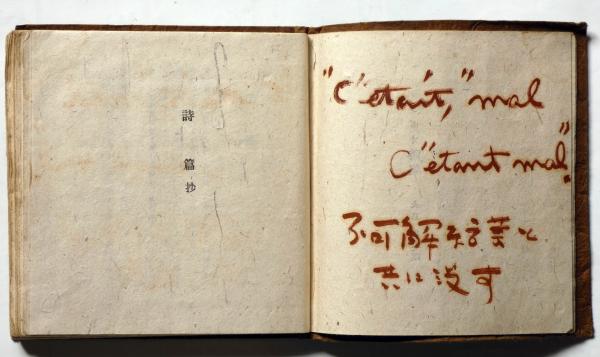 詩篇抄
"C'etait," "mal
C"etant mal"
不可解な言葉と
共に没す